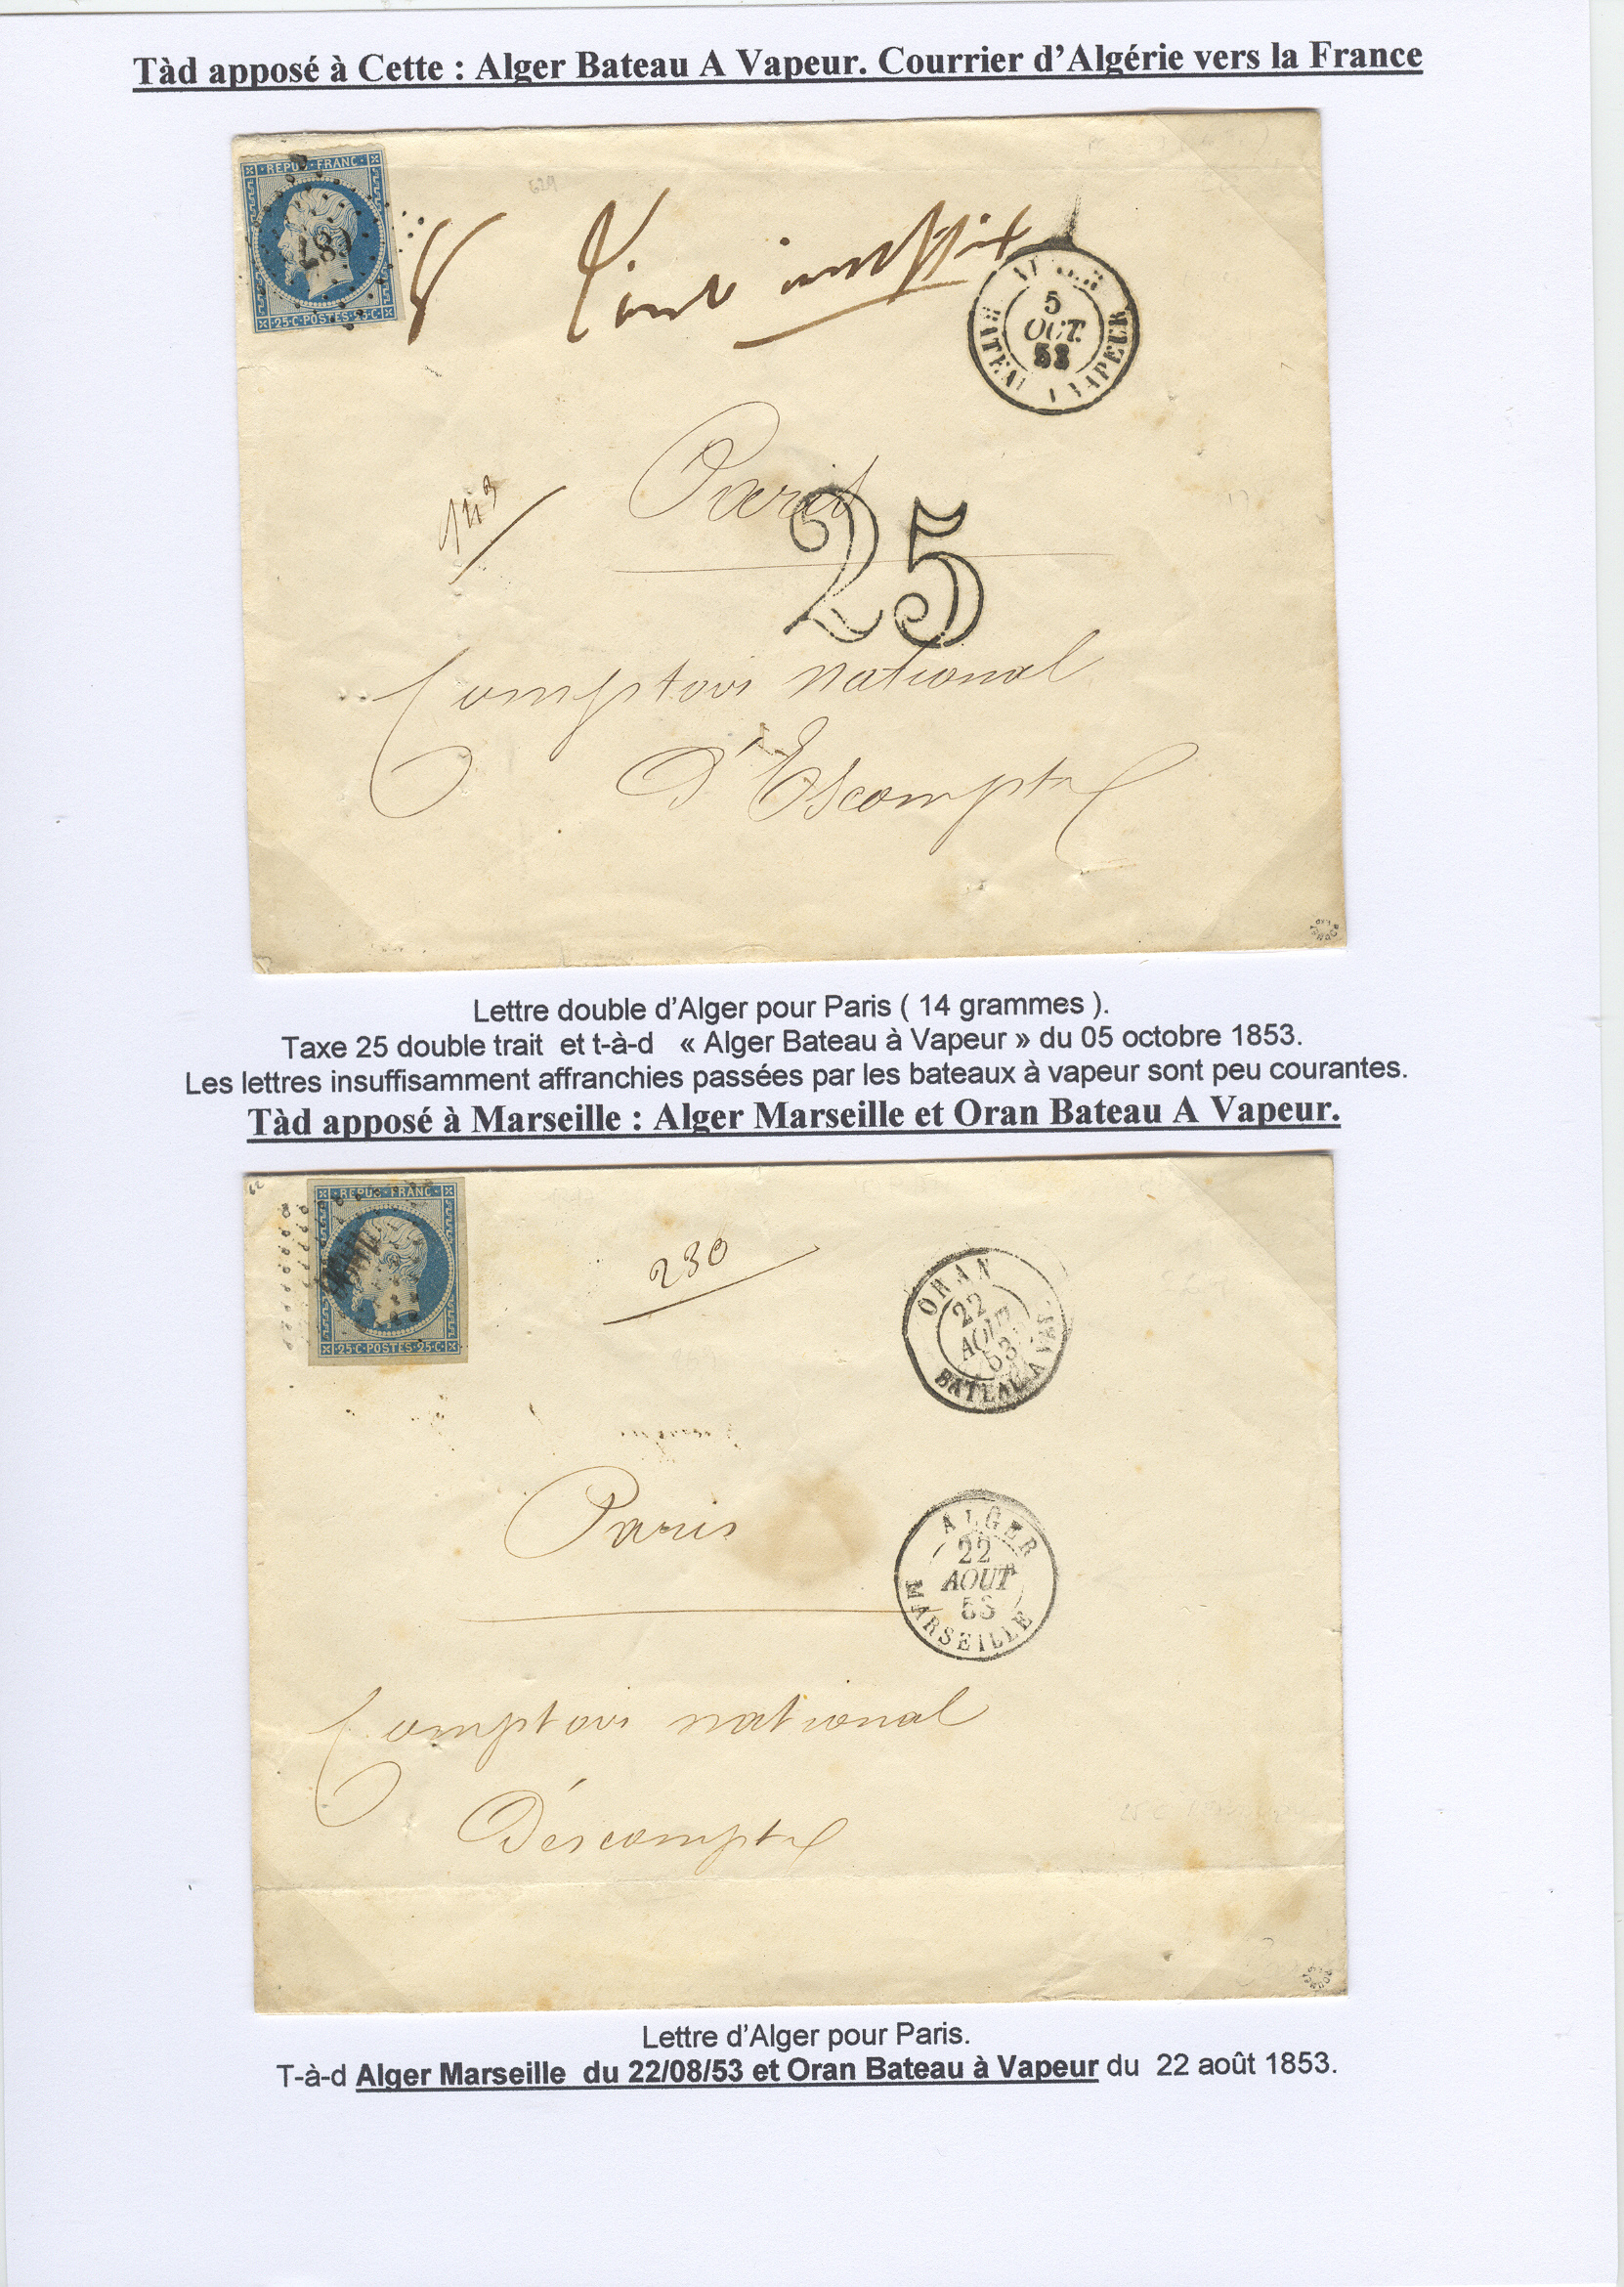 Tàd apposé à Cette : Alger Bateau A Vapeur. Courrier d’Algérie vers la France
REPUB FRANC
25·C·POSTES·25·C
8
insuffit
5
OCT.
53
BATEAU A VAPEUR
143
Paris
25
Comptoir national
d'Escompte
Lettre double d’Alger pour Paris ( 14 grammes ).
Taxe 25 double trait et t-à-d « Alger Bateau à Vapeur » du 05 octobre 1853.
Les lettres insuffisamment affranchies passées par les bateaux à vapeur sont peu courantes.
Tàd apposé à Marseille : Alger Marseille et Oran Bateau A Vapeur.
REPUB·FRANC
25·C·POSTES·25·C
230
ORAN
22
AOUT
53
BATEAU A VAP.
Paris
ALGER
22
AOUT
53
MARSEILLE
Comptoir national
Déscompte
Lettre d’Alger pour Paris.
T-à-d Alger Marseille du 22/08/53 et Oran Bateau à Vapeur du 22 août 1853.